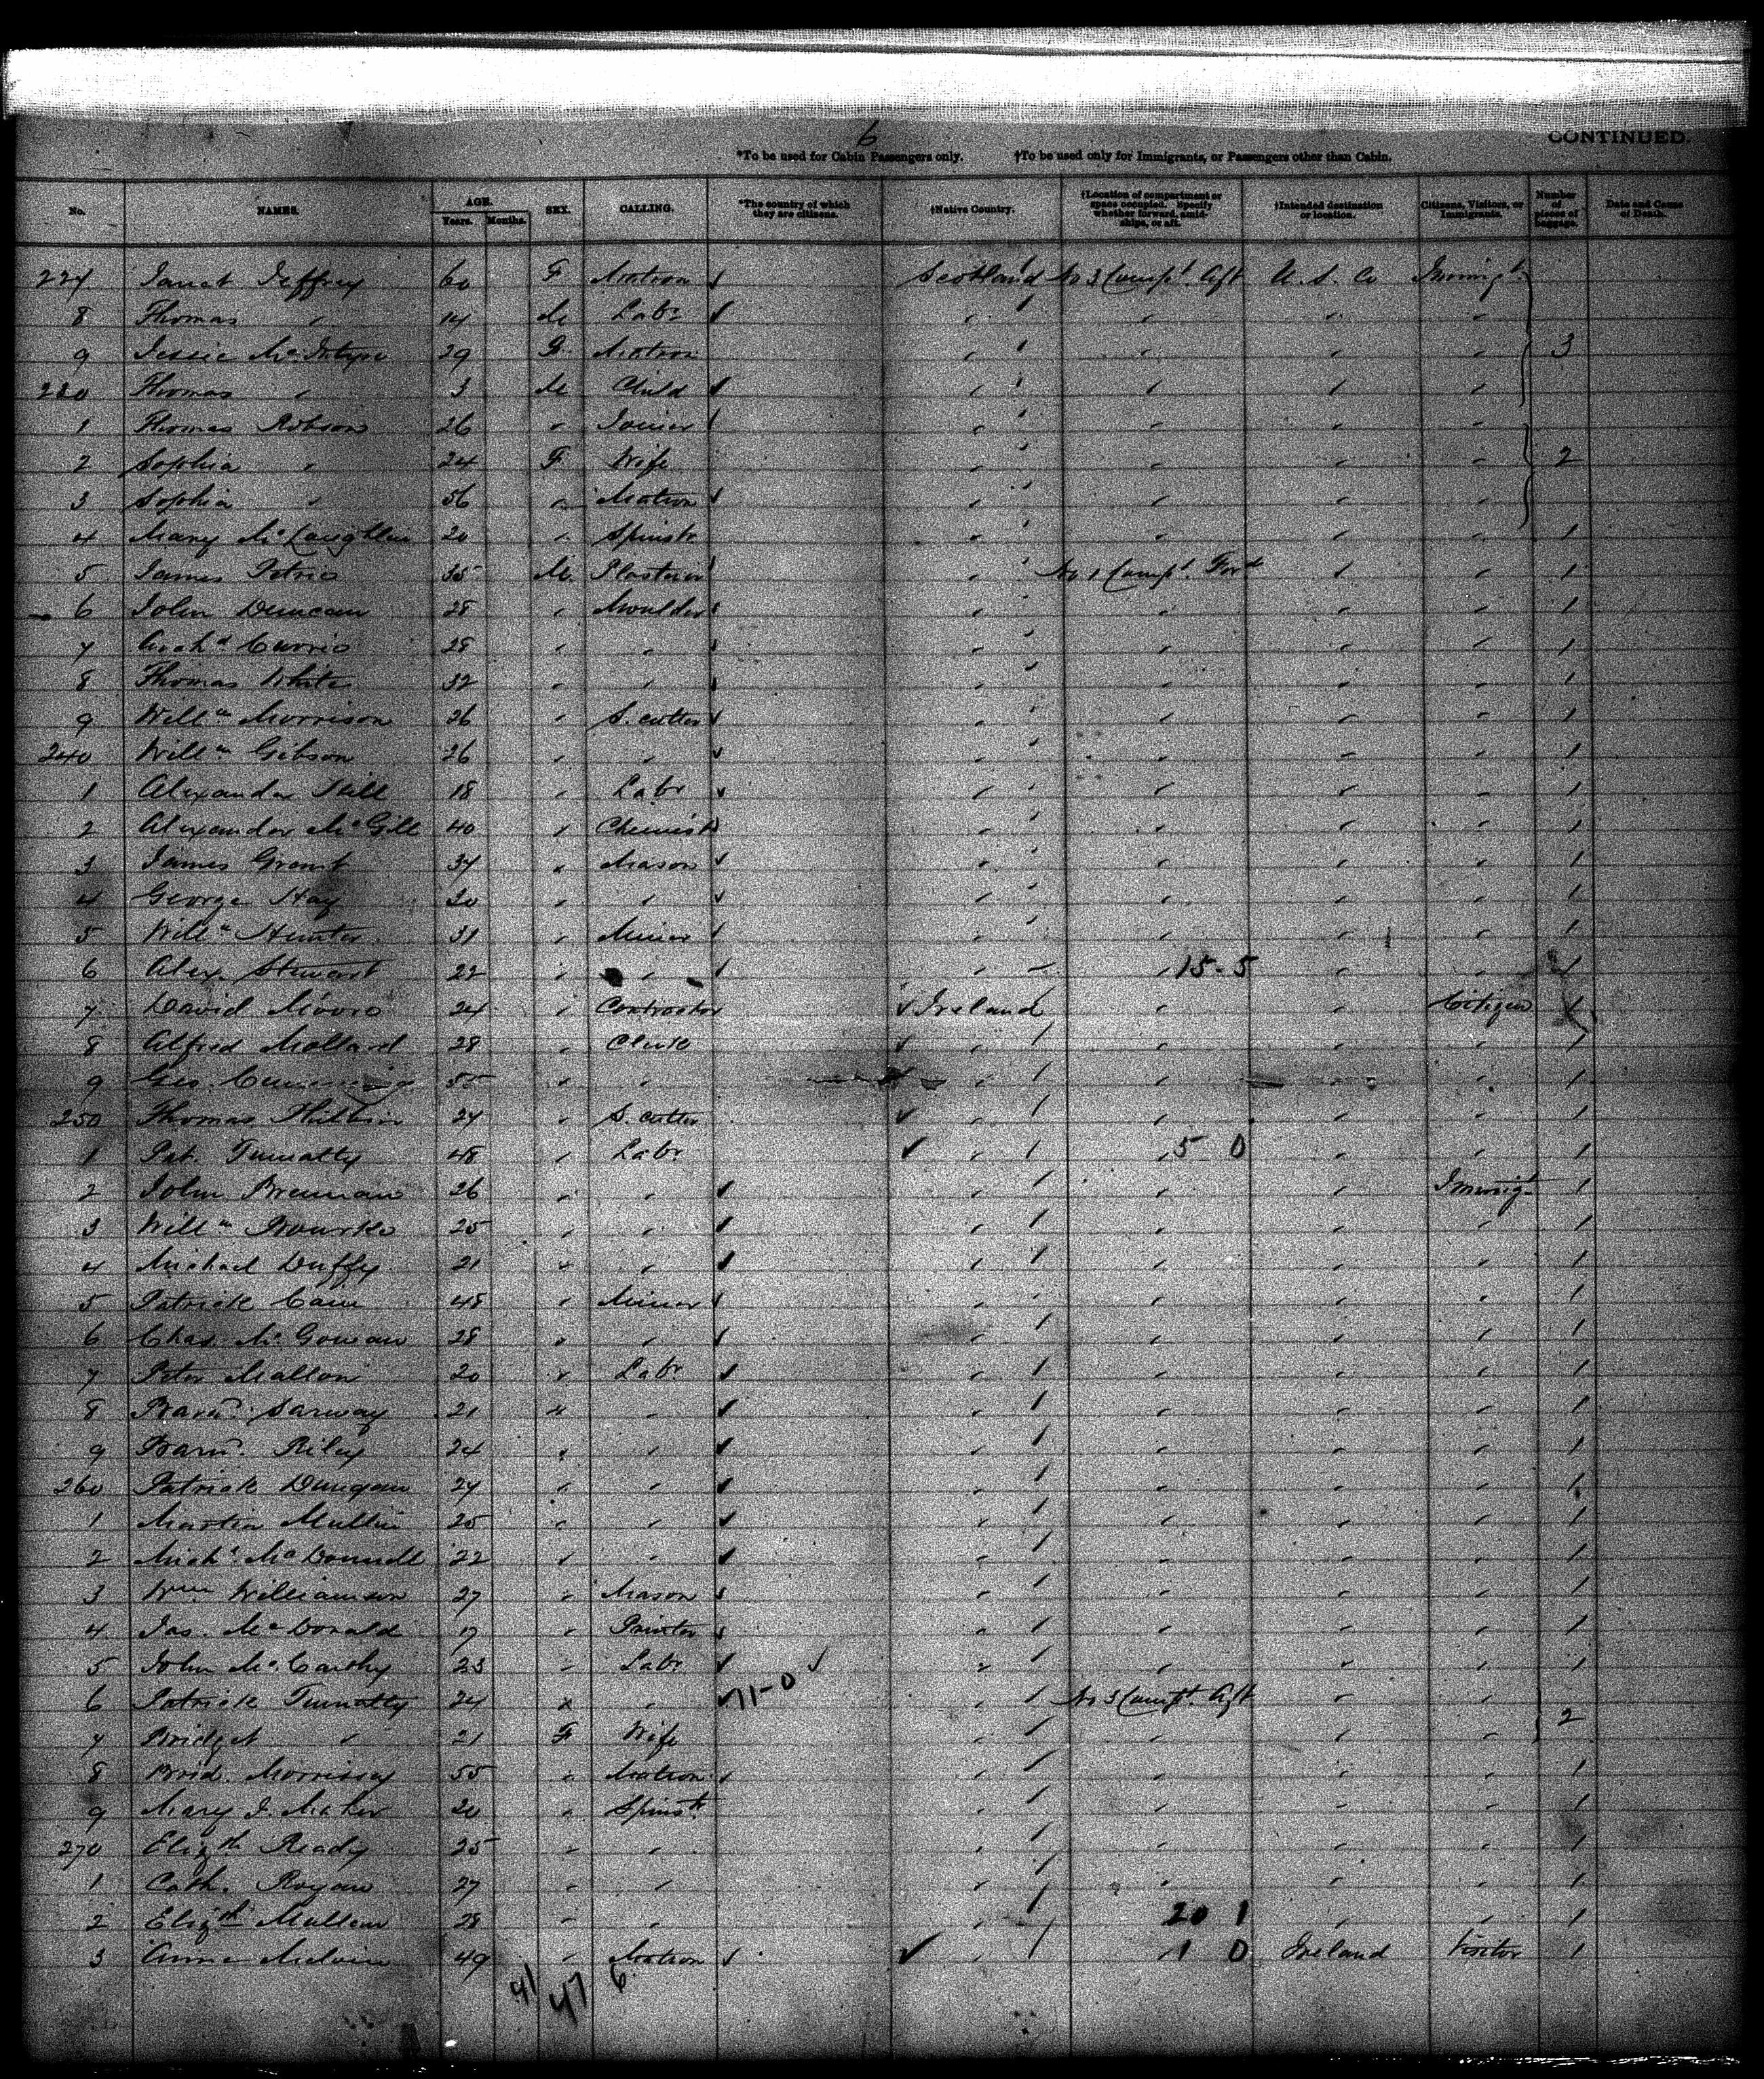 6
CONTINUED.
*To be used for Cabin Passengers only. †To be used only for Immigrants, or Passengers other than Cabin.
No. NAMES. AGE. Years. Months. SEX. CALLING. *The country of which they are citizens. †Native Country. †Location of compartment or space occupied. Specify whether forward, amidships, or aft. †Intended destination or location. Citizens, Visitors, or Immigrants. Number of pieces of baggage. Date and Cause of Death.
227 Janet Jeffrey 60 F Matron Scotland No 3 Compt. Aft U. S. Co Immigt.
8 Thomas " 14 M Labr " " " "
9 Jessie McIntyre 29 F Matron " " " " 3
230 Thomas " 3 M Child " " " "
1 Thomas Robson 26 " Joiner " " " "
2 Sophia " 24 F Wife " " " " 2
3 Sophia " 56 " Matron " " " "
4 Mary McLaughlin 20 " Spinstr " " " " 1
5 James Petrie 35 M. Plasterer " No 1 Compt. Ford " " 1
6 John Duncan 28 " Moulder " " " " 1
7 Archd Currie 28 " " " " " " 1
8 Thomas White 32 " " " " " " 1
9 Willm Morrison 26 " S. cutter " " " " 1
240 Willm Gibson 26 " " " " " " 1
1 Alexander Hill 18 " Labr " " " " 1
2 Alexander McGill 40 " Chemist " " " " 1
3 James Grant 34 " Mason " " " " 1
4 George Hay 20 " " " " " " 1
5 Willm Hunter 31 " Miner " " " " 1
6 Alex. Stewart 22 " " " " 15-5 " " 1
7 David Moore 24 " Contractor Ireland " " Citizen
8 Alfred Mollard 28 " Clerk " " " " 1
9 Geo. 55 " " " " " " 1
250 Thomas 24 " S. cutter " " " " 1
1 Pat. Tunnatty 48 " Labr " " 5 0 " " 1
2 John Brennan 26 " " " " " Immigt 1
3 Willm Bourke 25 " " " " " " 1
4 Michael Duffy 21 " " " " " " 1
5 Patrick Cain 48 " Miner " " " " 1
6 Chas. McGowan 28 " " " " " " 1
7 Peter Mallon 20 " Labr " " " " 1
8 Barnd. Sarway 21 " " " " " " 1
9 Barnd. Riley 24 " " " " " " 1
260 Patrick Dungan 24 " " " " " " 1
1 Martin Mullin 25 " " " " " " 1
2 Michl McDonnell 22 " " " " " " 1
3 Wm Williamson 27 " Mason " " " " 1
4 Jas. McDonald 17 " Printer " " " " 1
5 John McCarthy 23 " Labr " " " " 1
6 Patrick Tunnatty 24 " " 71-0 " No 3 Compt. Aft " "
7 Bridget " 21 F Wife " " " " 2
8 Brid. Morrissy 55 " Matron " " " " 1
9 Mary J. Maher 20 " Spinstr " " " " 1
270 Elizth Ready 25 " " " " " " 1
1 Cath. Rogan 27 " " " " " " 1
2 Elizth Mullen 28 " " " 20 1 " " 1
3 Annie Melvin 49 " Matron " " 1 0 Ireland Visitor 1
41 47 6